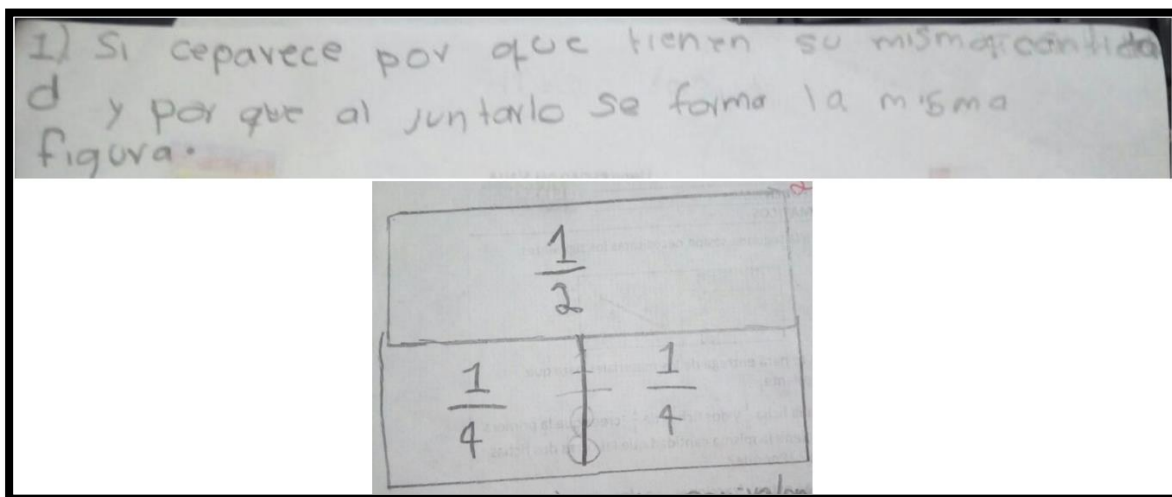 1) Si ceparece por que tienen su misma cantida
d y por que al juntarlo se forma la misma
figura.
1
2
1
4
1
4